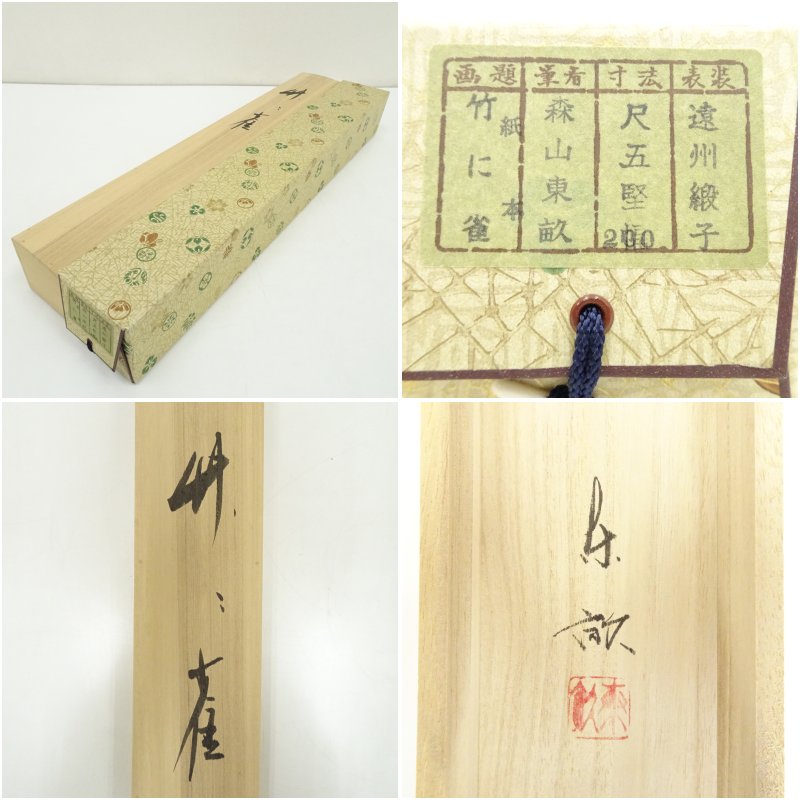 竹に雀
画題
筆者
寸法
表装
竹に雀
紙本
森山東畝
尺五堅幅
200
遠州緞子
竹に雀
東畝